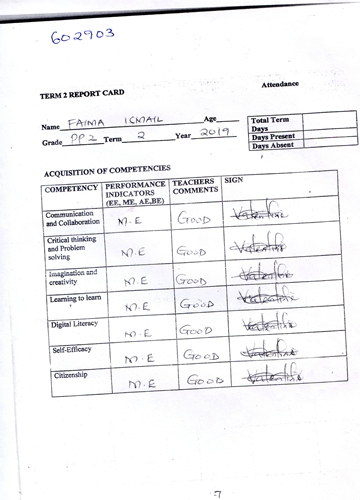 602903
Attendance
TERM 2 REPORT CARD
Name FAIMA ISMAIL Age
Grade PP2 Term 2 Year 2019
Total Term Days
Days Present
Days Absent
ACQUISITION OF COMPETENCIES
COMPETENCY PERFORMANCE INDICATORS (EE, ME, AE,BE) TEACHERS COMMENTS SIGN
Communication and Collaboration M.E GOOD Valentine
Critical thinking and Problem solving M.E GOOD Valentine
Imagination and creativity M.E GOOD Valentine
Learning to learn M.E GOOD Valentine
Digital Literacy M.E GOOD Valentine
Self-Efficacy M.E GOOD Valentine
Citizenship M.E GOOD Valentine
7